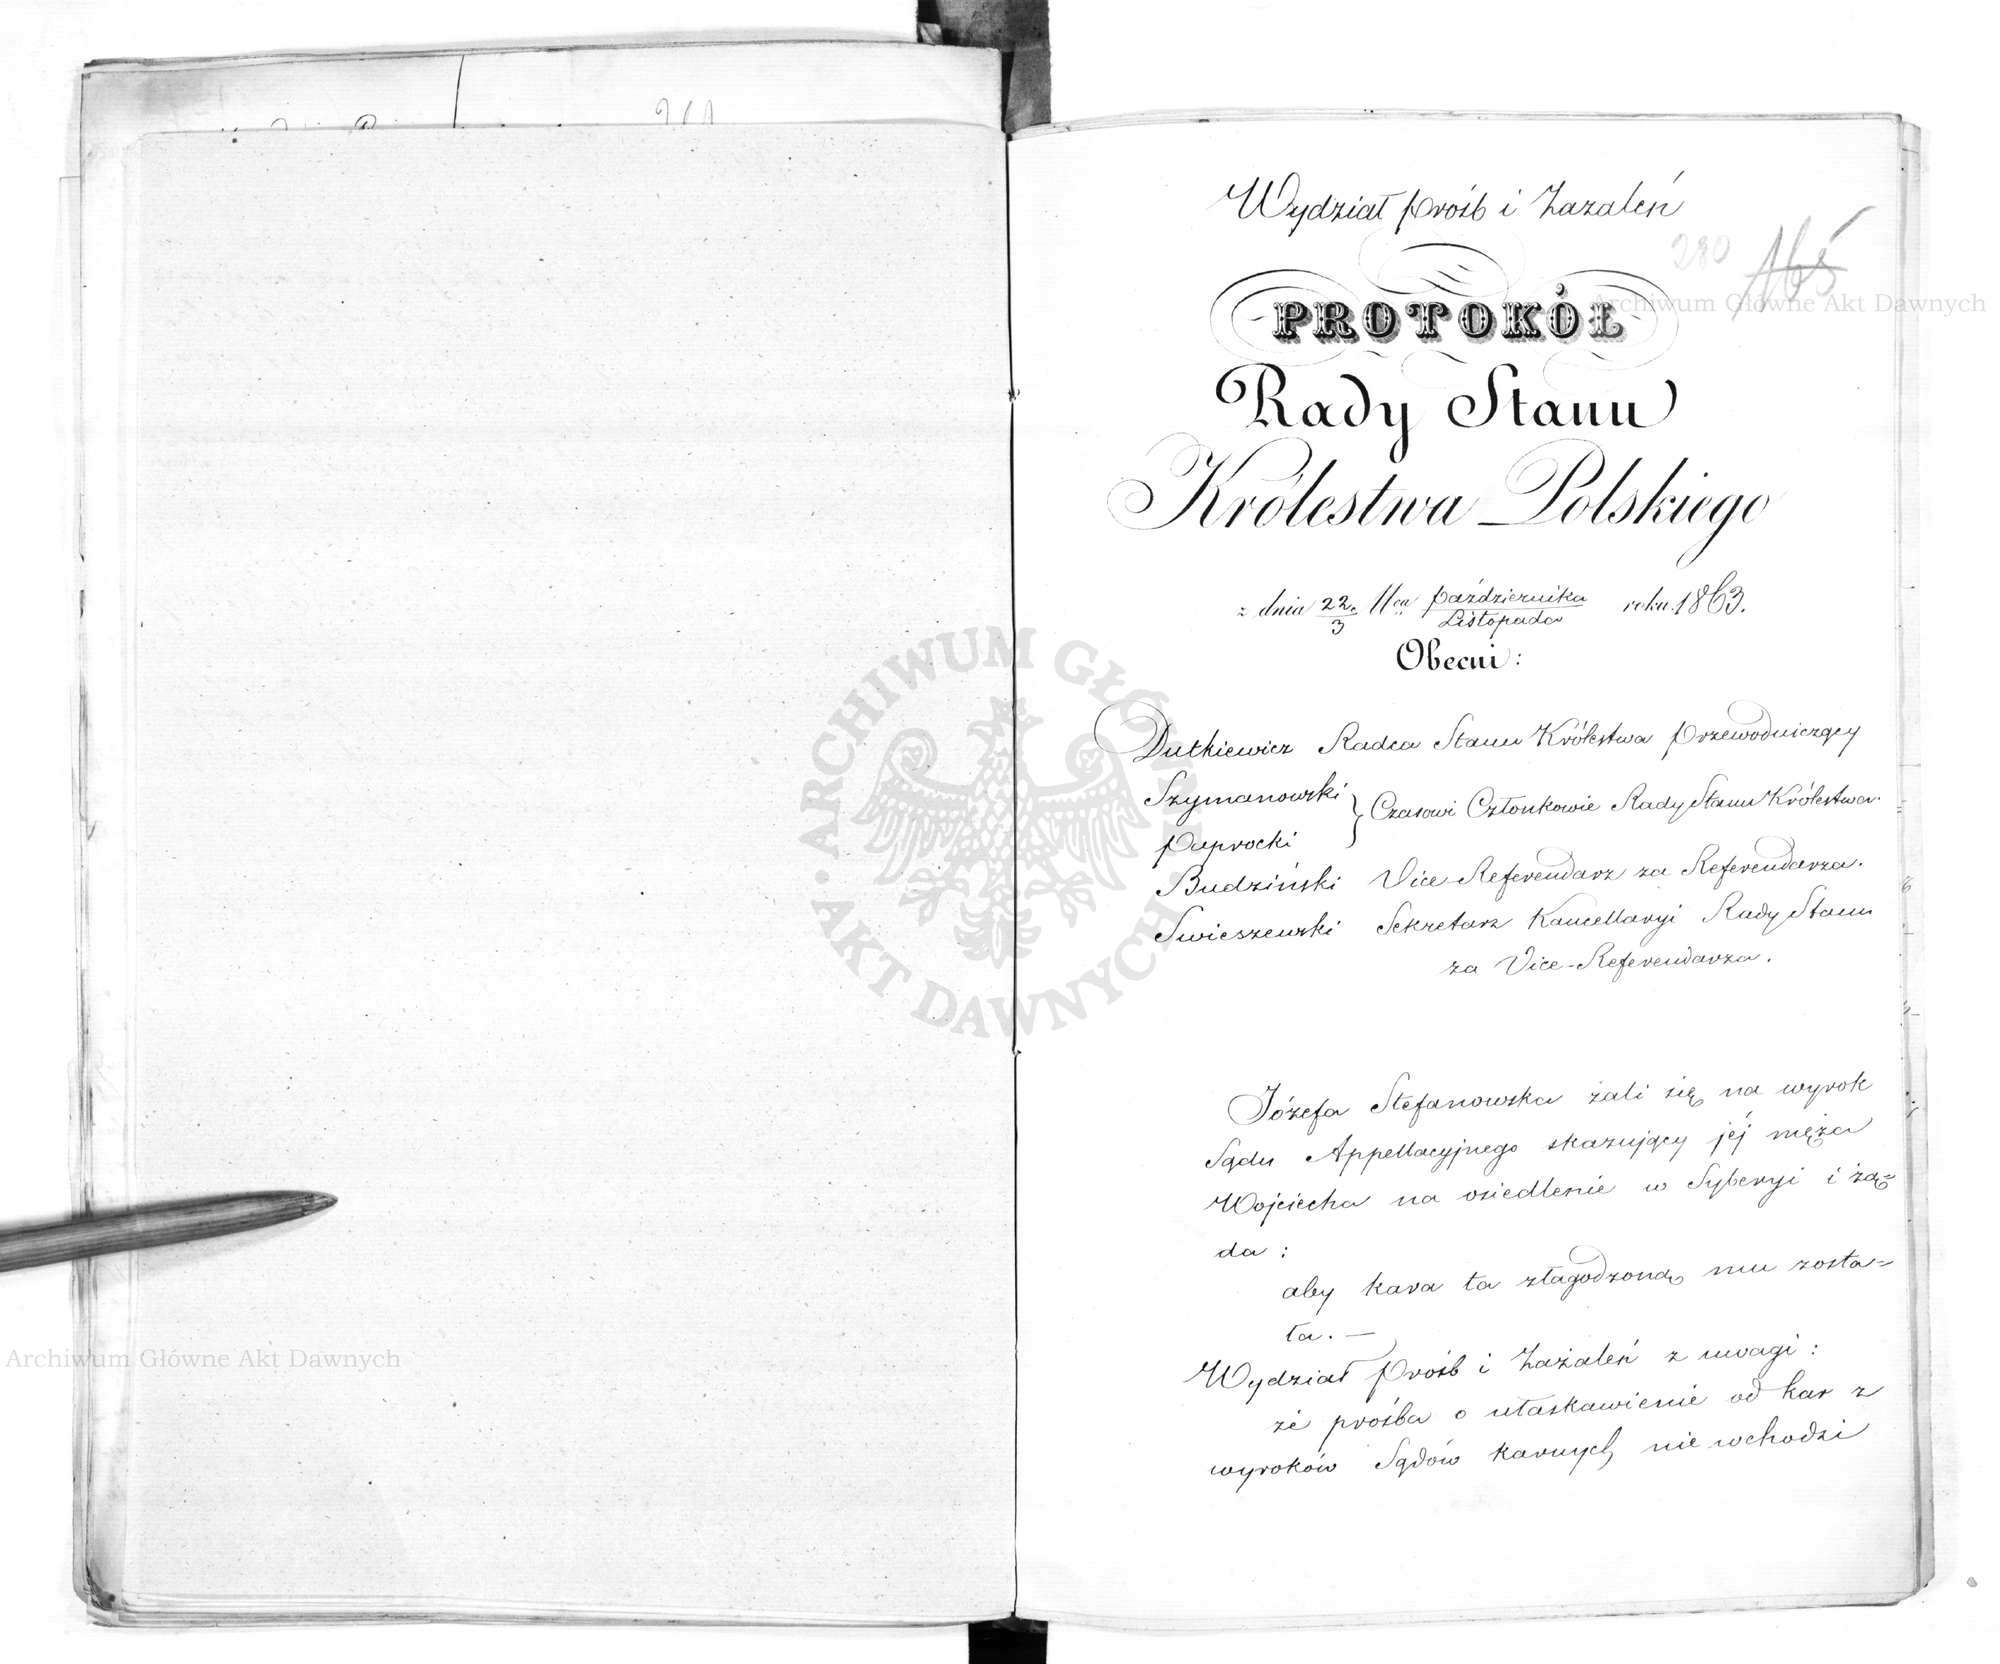 Wydział Próśb i Zażaleń
280
165
PROTOKÓŁ
Rady Stanu
Królestwa Polskiego
z dnia 22/3 Mca Października/Listopada roku 1863.
Obecni:
Dutkiewicz Radca Stanu Królestwa Przewodniczący
Szymanowski
Paprocki } Czasowi Członkowie Rady Stanu Królestwa.
Budziński Vice-Referendarz za Referendarza.
Swieszewski Sekretarz Kancellaryi Rady Stanu
za Vice-Referendarza.
Józefa Stefanowska żali się na wyrok
Sądu Appellacyjnego skazujący jéj męża
Wojciecha na osiedlenie w Syberyi i żą=
da:
aby kara ta złagodzoną mu zosta=
ła. —
Wydział Próśb i Zażaleń z uwagi:
że prośba o ułaskawienie od kar z
wyroków Sądów karnych, nie wchodzi
Archiwum Główne Akt Dawnych
Archiwum Główne Akt Dawnych
ARCHIWUM GŁÓWNE · AKT DAWNYCH ·